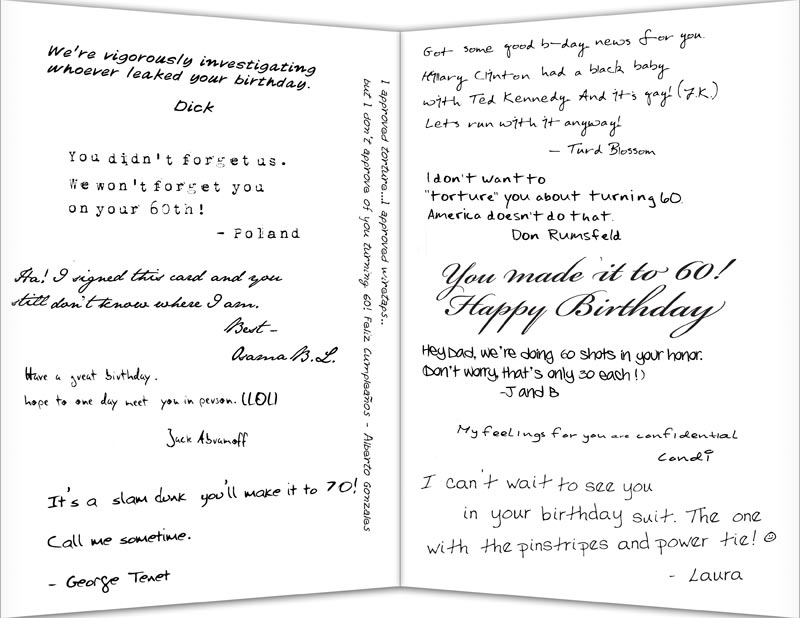 We're vigorously investigating
whoever leaked your birthday.
Dick
You didn't forget us.
We won't forget you
on your 60th!
- Poland
Ha! I signed this card and you
still don't know where I am.
Best -
Osama B.L.
Have a great birthday.
hope to one day meet you in person. (LOL)
Jack Abramoff
It's a slam dunk you'll make it to 70!
Call me sometime.
- George Tenet
I approved torture...I approved wiretaps..
but I don't approve of you turning 60! Feliz Cumpleaños - Alberto Gonzalas
Got some good b-day news for you.
Hillary Clinton had a black baby
with Ted Kennedy. And it's gay! (J.K.)
Lets run with it anyway!
- Turd Blossom
I don't want to
"torture" you about turning 60.
America doesn't do that.
Don Rumsfeld
You made it to 60!
Happy Birthday
Hey Dad, we're doing 60 shots in your honor.
(Don't worry, that's only 30 each!)
-J and B
My feelings for you are confidential
Condi
I can't wait to see you
in your birthday suit. The one
with the pinstripes and power tie! ☺
- Laura